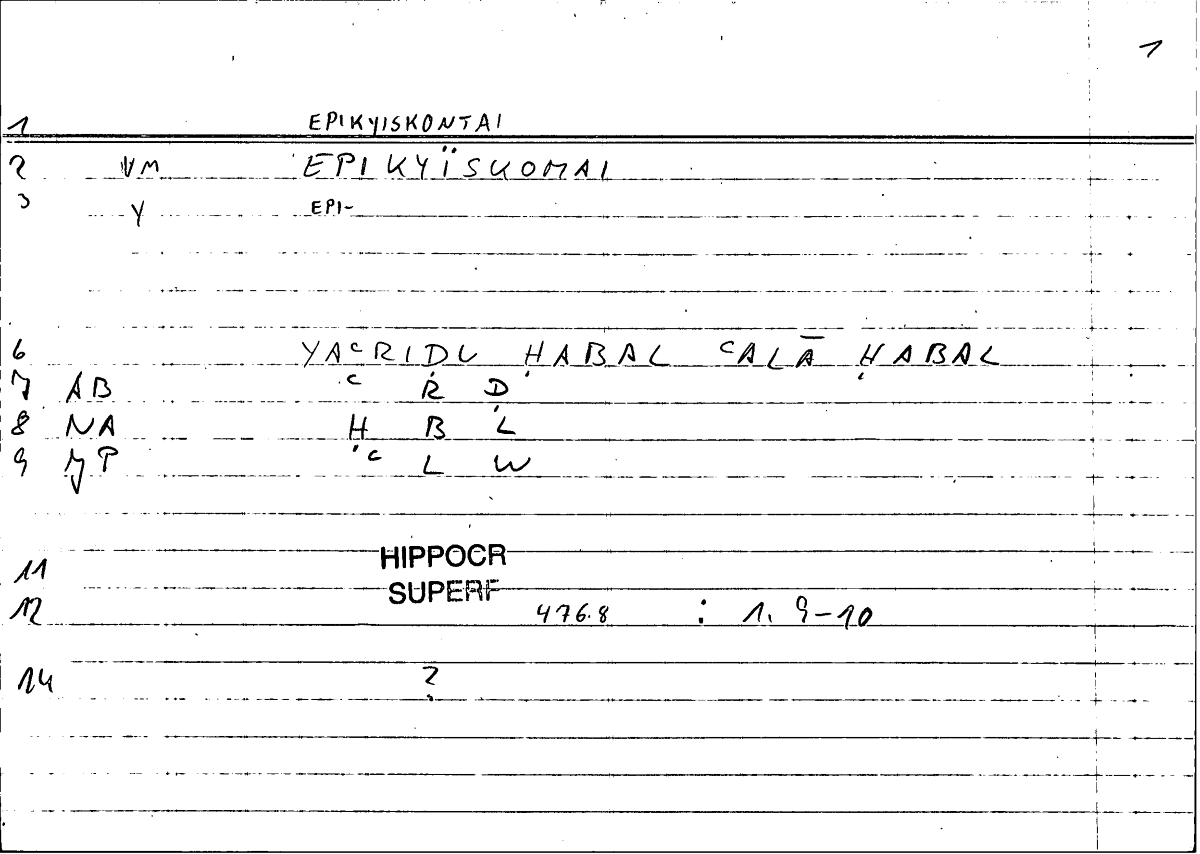 1
1 EPIKYISKONTAI
2 VM EPIKYÏSKOMAI
3 Y EPI-
6 YAʿRIḌU ḤABAL ʿALĀ ḤABAL
7 AB ʿ R Ḍ
8 NA Ḥ B L
9 JP ʿ L W
11 HIPPOCR
SUPERF
12 476.8 : 1. 9-10
14 ?